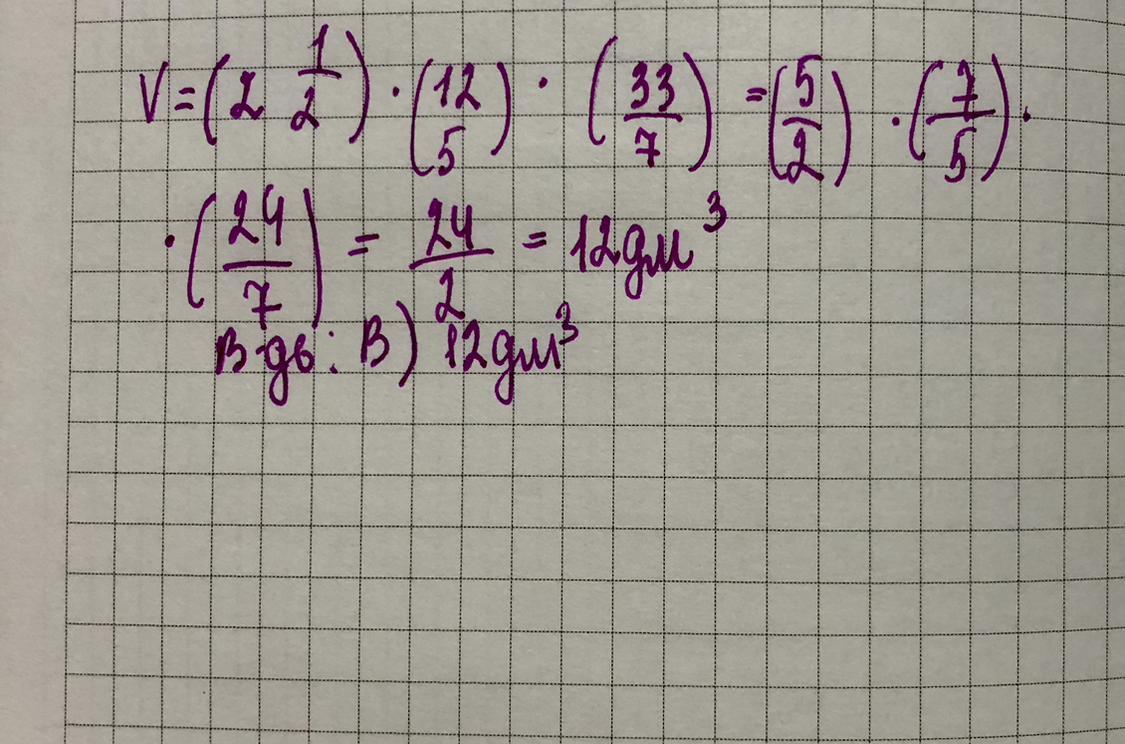 V=(2 1/2)·(12 5)·(33/7)=(5/2)·(7/5)·
·(24/7)=24/2=12дм³
В-дь: В) 12дм³